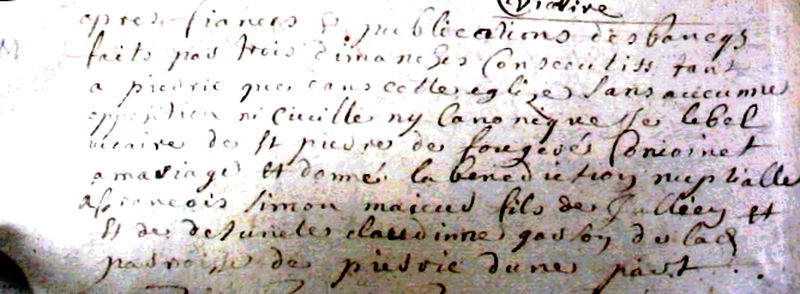 Victire
apres fiances & publications des bancqs
faits par trois dimanches Consecutifs tant
a pierric que dans cette eglise sans aucunne
opposition ni Civille ny Canonicque Je lebel
vicaire de St pierre de fougeré Conioinct
a mariage et donné la benediction nuptialle
a francois Simon maieur fils de Jullien
et de defuncte claudinne gaston de lad
parroisse de pierric dune part